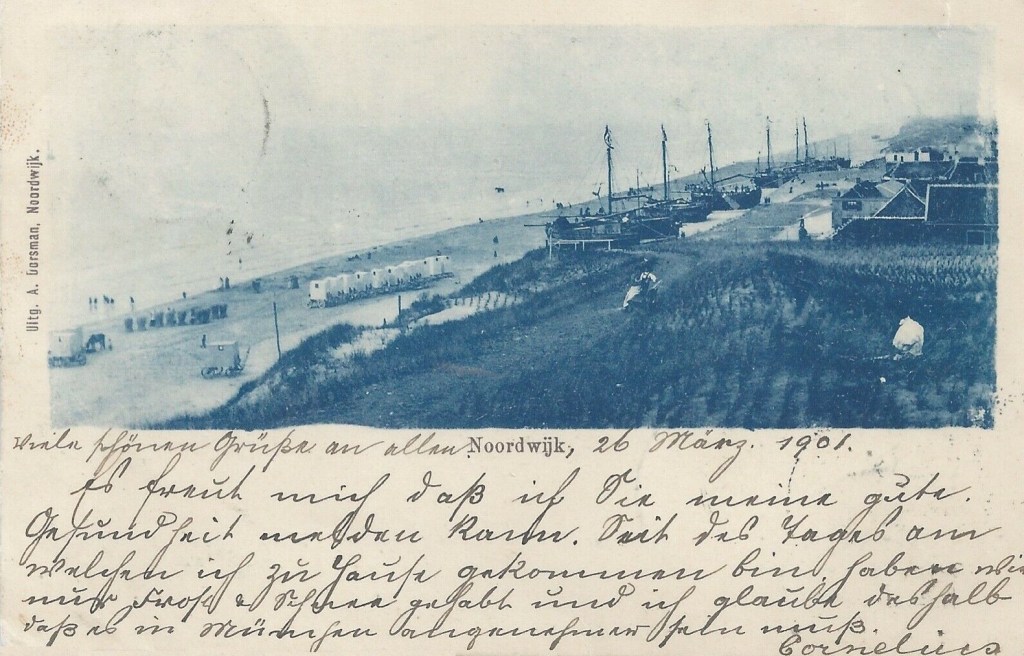 Uitg. A. Dorsman, Noordwijk.
Viele schönen Grüße an allen Noordwijk, 26 März. 1901.
Es freut mich daß ich Sie meine gute.
Gesundheit melden kann. Seit des Tages am
welchen ich zu Hause gekommen bin, haben wir
nur Frost & Schnee gehabt und ich glaube deshalb
daß es in München angenehmer sein muß.
Cornelius